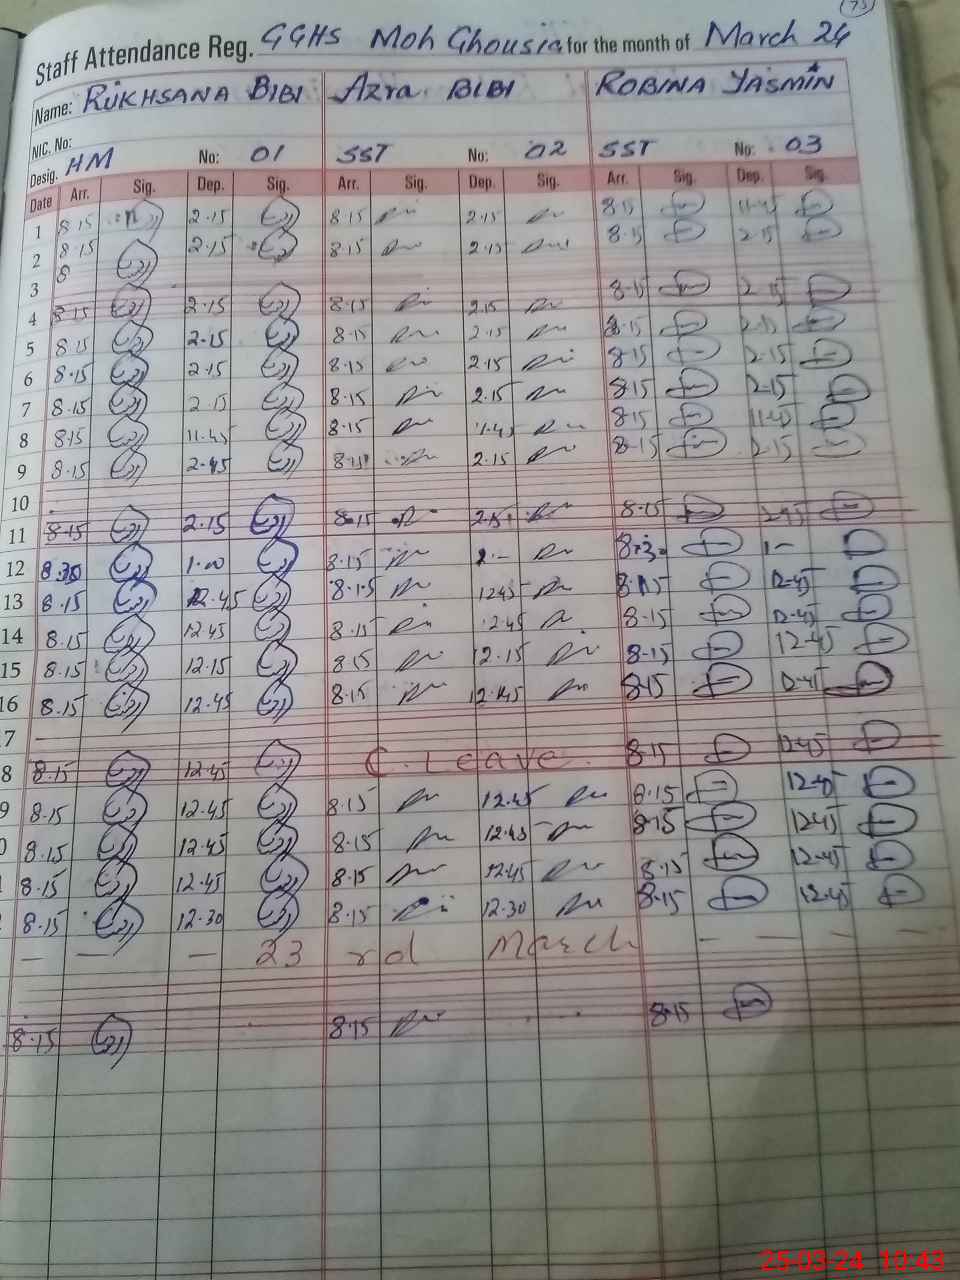 73
Staff Attendance Reg. GGHS Moh Ghousia for the month of March 24
Name: RUKHSANA BIBI Azra BIBI ROBINA YASMIN
NIC. No:
Desig. HM No: 01 SST No: 02 SST No: 03
Date Arr. Sig. Dep. Sig. Arr. Sig. Dep. Sig. Arr. Sig. Dep. Sig.
1 8.15 2.15 8.15 2.15 8.15 11.45
2 8.15 2.15 8.15 2.15 8.15 2.15
8
3
4 8.15 2.15 8.15 2.15 8.15 2.15
5 8.15 2.15 8.15 2.15 8.15
6 8.15 2.15 8.15 2.15 8.15 2.15
7 8.15 2.15 8.15 2.15 8.15 2.15
8 8.15 11.45 8.15 11.45 8.15 11.45
9 8.15 8.15 2.15 8.15 2.15
10
11 8.15 2.15 8.15 2.15 8.15
12 8.30 1.00 8.15 8.30 1-
13 8.15 12.45 8.15 12.45 8.15 12.45
14 8.15 12.45 8.15 12.45 8.15 12.45
15 8.15 12.15 8.15 12.15 8.15 12.45
16 8.15 12.45 8.15 12.45 8.15 12.45
7
8 8.15 12.45 C. Leave. 8.15 12.45
9 8.15 12.45 8.15 12.45 8.15 12.45
0 8.15 12.45 8.15 12.45 8.15 12.45
8.15 12.45 8.15 12.45 8.15 12.45
8.15 12.30 8.15 12.30 8.15 12.45
— — — 23 rd March — — — —
8.15 8.15 8.15
25-03-24 10:43